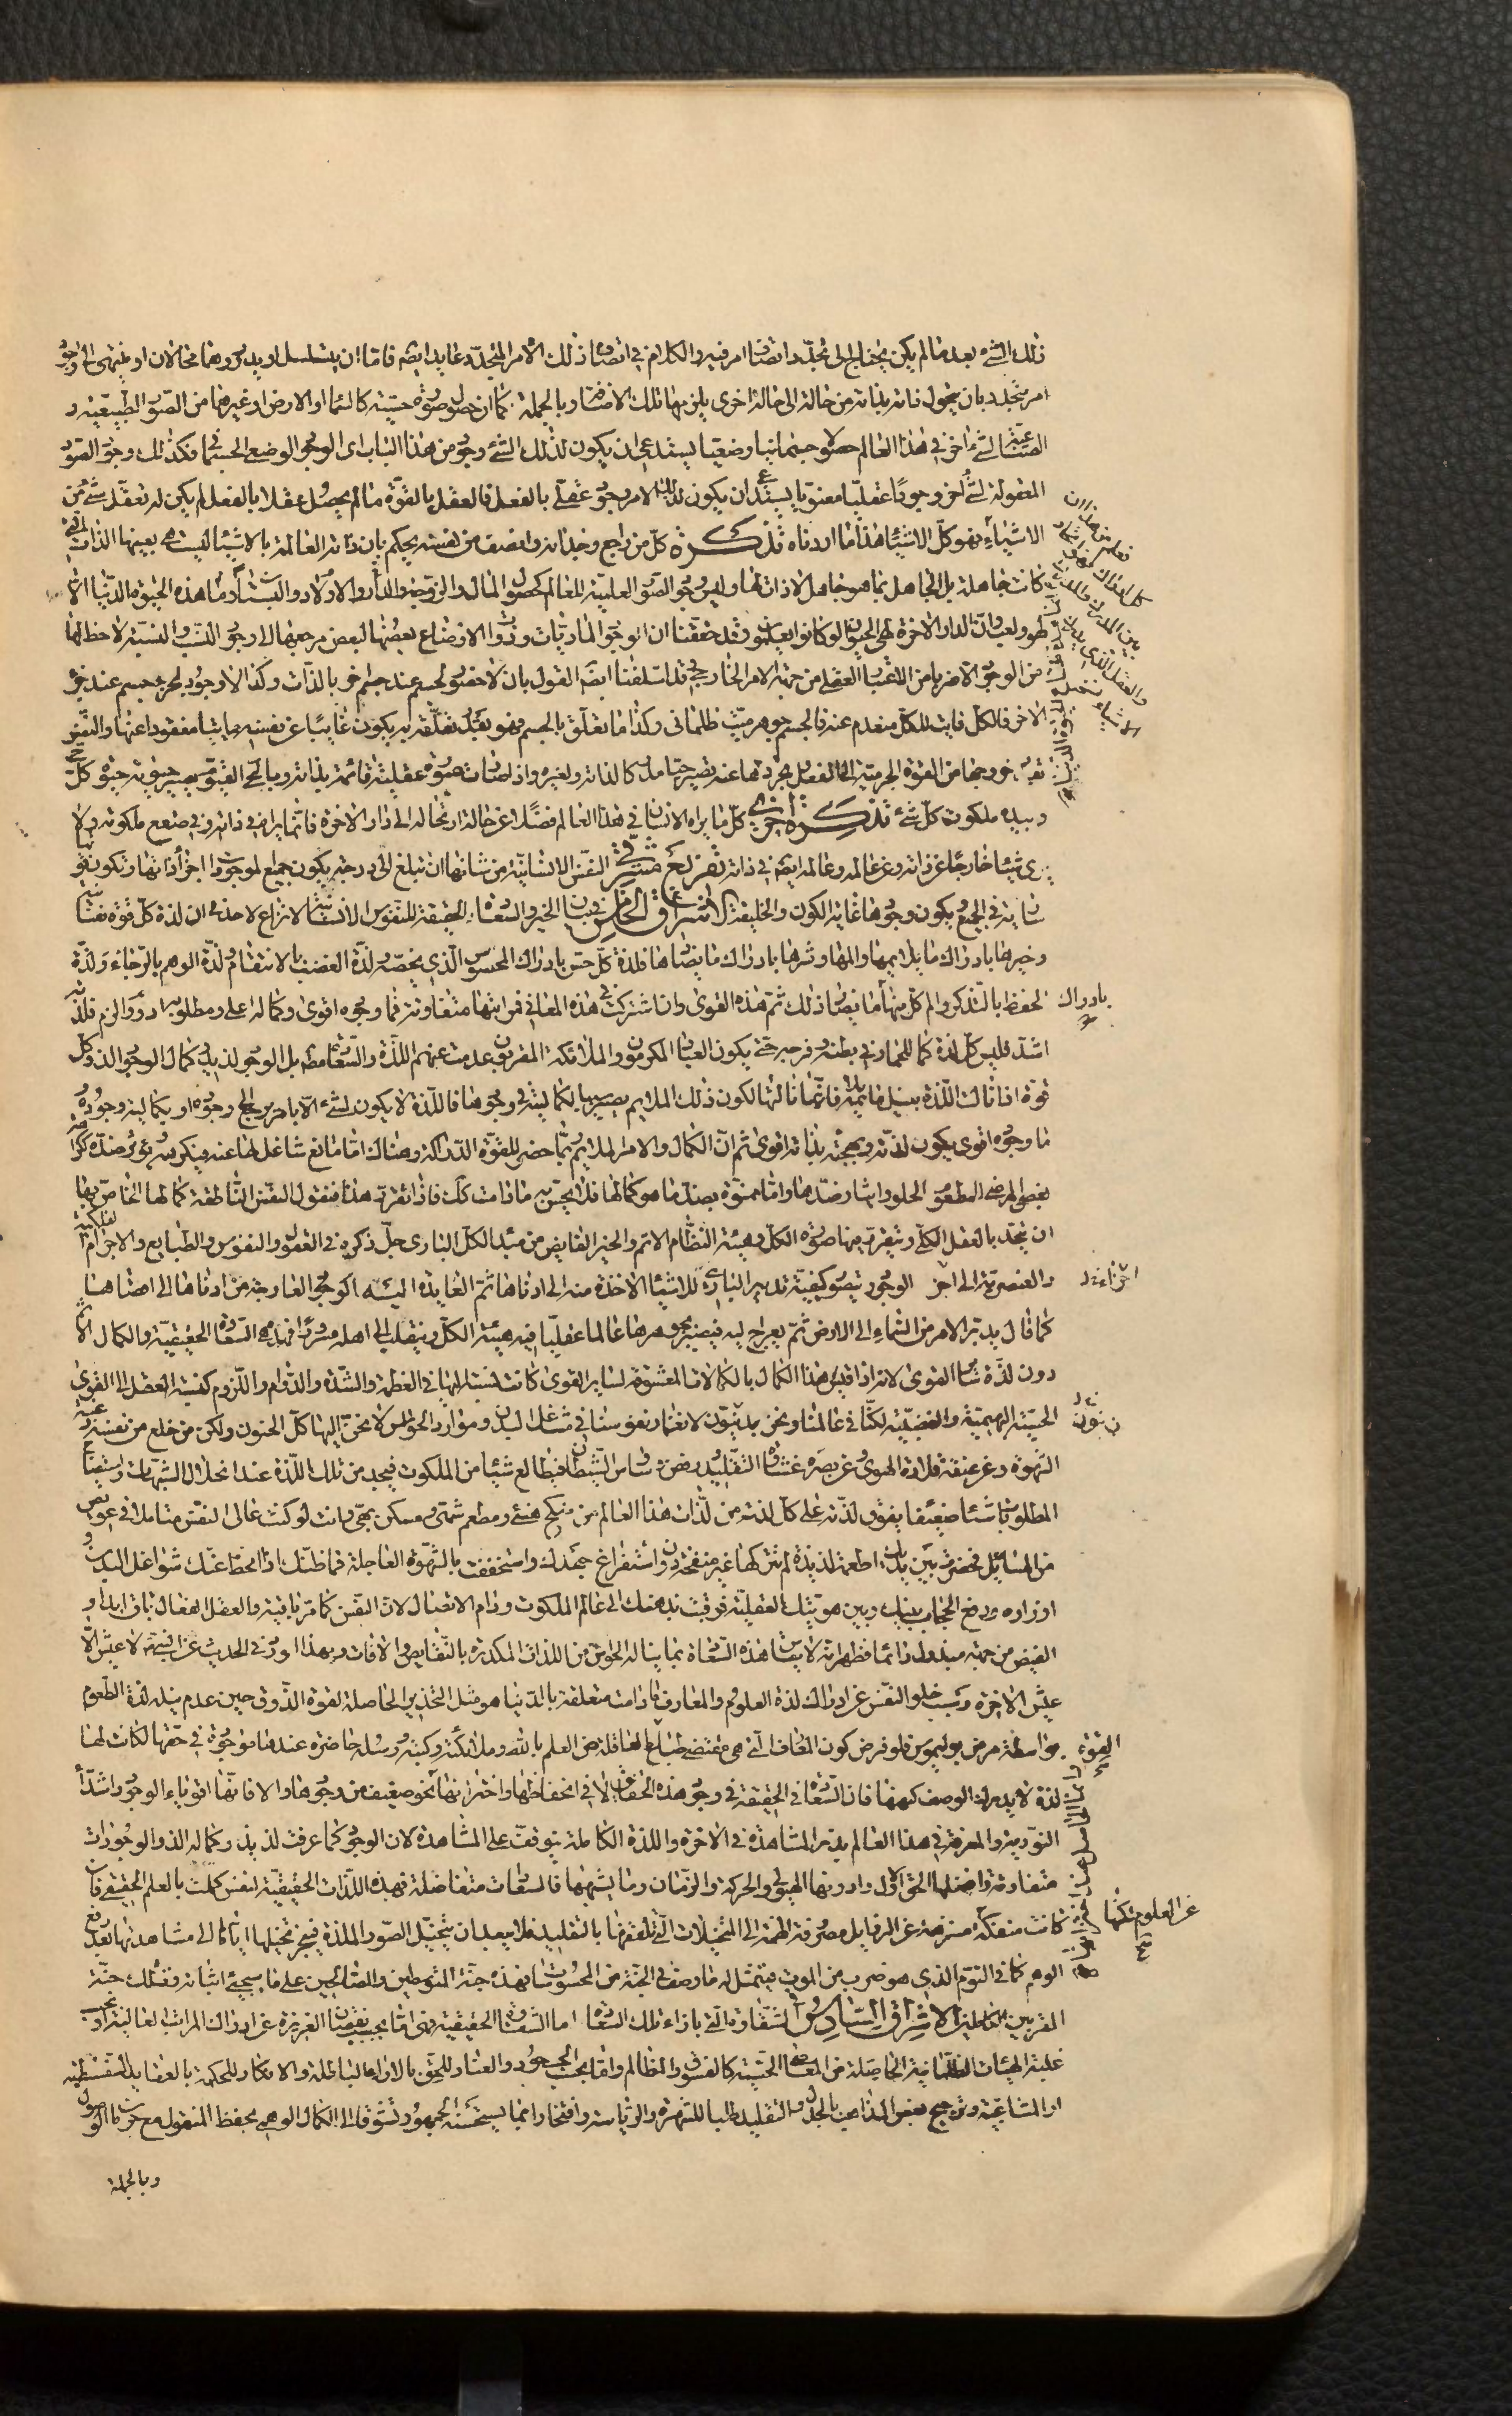 ذلك الشئ بعد ما لم يكن يحتاج الى تجدد اتصاف امر فيه والكلام في اتصاف ذلك الامر المتجدد عايد ايضه فاما ان يتسلسل او يدور وهما محالان او ينتهى الى وجود
امر يتجدد بان يتحول ذاته بذاته من حالة الى حالة اخرى يلزمها تلك الاضافة وبالجملة كما ان حصول صورة حسية كالسماء او الارض او غيرهما من الصور الطبيعية و
الصناعية لشئ اخر في هذا العالم حصولا جسمانيا وضعيا يستدعى ان يكون لذلك الشئ وجود من هذا الباب اى الوجود الوضعى الجسمانى فكذلك وجود الصور
المعقولة لشئ اخر وجودا عقليا معنويا يستدعى ان يكون لذلك الامر وجود عقلى بالفعل فالعقل بالقوة ما لم يحصل عقلا بالفعل لم يكن له تعقل شئ من
الاشياء فهو كل الاشياء هذا ما اردناه تذكرة كل من راجع وجدانه وانصف من نفسه يحكم بان ذاته العالمة بالاشياء ليست هى بعينها الذات التى
كانت جاهلة بل الجاهل بما هو جاهل لا ذات لها وليس وجود الصور العلمية للعالم كحصول المال والزوجة والدار والاولاد والبستان وما هذه الحيوة الدنيا الا
لهو ولعب وان الدار الاخرة لهى الحيوان لو كانوا يعلمون وقد حققنا ان الوجود الماديات وذوات الاوضاع بعضها لبعض مرجعها الى وجود النسب والنسبة لا حظ لها
من الوجود الا ضربا من الاعتبار العقلى من جهة الامر الخارجى وقد اسلفنا ايضه القول بان لا حضور لجسم عند جسم اخر بالذات وكذا لا وجود لجزء جسم عند جزئه
الاخر فالكل فايت للكل منعدم عنه فالجسم جوهر ميت ظلمانى وكذا ما تعلق بالجسم فهو بقدر تعلقه به يكون غايبا عن نفسه مايتا مفقودا عنها والنفس
بقدر خروجها من القوة الجرمية الى الفعل بتجردها عنه تصير حيا مدركا لذاته ولغيره واذا صارت صورة عقلية قائمة بذاته وبالحى القيوم يصير حيوته حيوة كل حى
وبيده ملكوت كل شئ تذكرة اخرى كل ما يراه الانسان في هذا العالم فضلا عن حالة ارتحاله الى دار الاخرة فانما يراه في ذاته وفي صقع ملكوته ولا
يرى شيئا خارجا عن ذاته وعن عالمه وعالمه ايضه في ذاته تفريع مشرقى النفس الانسانية من شانها ان تبلغ الى درجة يكون جميع الموجودات اجزأ ذاتها وتكون قوتها
سارية في الجميع ويكون وجودها غاية الكون والخليقة الاشراق الخامس في بيان الخير والسعادة الحقيقة للنفوس الانسانية لا نزاع لاحد في ان لذة كل قوة نفسانية
وخيرها بادراك ما يلايمها والمها وشرها بادراك ما يضادها فلذة كل حس بادراك المحسوس الذى يختصه ولذة الغضب بالانتقام ولذة الوهم بالرجاء ولذة
الحفظ بالتذكر والم كل منها بادراك ما يضاد ذلك ثم هذه القوى وان اشتركت في هذه المعانى فمراتبها متفاوتة فما وجوده اقوى وكماله اعلى ومطلوبه ادوم والزم فلذته
اشد فليس كل لذة كما للحمار في بطنه وفرجه حتى يكون العباد المكرمون والملائكة المقربون عدمت عنهم اللذة والسعادة مطه بل الوجود لذيذ وكمال الوجود الذ وكل
قوة اذا نالت اللذة بنيل ما يلايمه فانما نالتها لكون ذلك الملايم يصير به كمالية في وجودها فاللذة لا يكون لشئ الا بامر يرجع الى وجوده او بكمالية وجوده
فما وجوده اقوى يكون لذته وبهجته بذاته اقوى ثم ان الكمال والامر الملايم ربما حضر للقوة الدراكة وهناك اما مانع شاغل لها عنه فيكرهه ويؤثر ضده كراهة
بعض المرضى المطعوم الحلو وايثار ضدها واما ممنوة بضد ما هو كمالها فلا يحس به ما دامت كك فاذا تقرر هذا فنقول النفس الناطقة كمالها الخاص بها
ان يتحد بالعقل الكلى ويتقرر فيها صورة الكل وهيئة النظام الاتم والخير الفايض من مبدء الكل البارى جل ذكره في العقول والنفوس والطبايع والاجرام الفلكية
والعنصرية الى اخر الوجود بتصور كيفية تدبير البارى للاشياء الاخذة منه الى ادناها ثم العايدة اليه كوجود العارجة من ادناها الى اقصاها
كما قال يدبر الامر من السماء الى الارض ثم يعرج اليه فيصير بجوهرها عالما عقليا فيه هيئة الكل وينقلب الى اهله مسرورا فهذه هى السعادة الحقيقية والكمال الاتم
دون لذة سائر القوى لانه اذا قيس هذا الكمال بالكمالات المعشوقة لساير القوى كانت نسبته اليها في العظمة والشدة والدوام واللزوم كنسبة العقل الى القوى
الحسية البهيمية والغضبية لكنا في عالمنا ونحن بدنيون لانغمار نفوسنا في مشاغل البدن وموارد الحواس لا نحن اليها كل الحنون ولكن من خلع من نفسه ربقة
الشهوة وعن عنقه قلادة الهوى وعن بصره غشاوة التقليد ورفض وساوس الشيطان فيطالع شيئا من الملكوت فيجد من تلك اللذة عند انحلال الشبهات واستيضاح
المطلوب شيئا ضعيفا يفوق لذته على كل لذة من لذات هذا العالم من منكح هنئ ومطعم شهى ومسكن بهى وانت لو كنت عالى النفس متاملا في عويص
من المسائل فحضرت بين يديك اطعمة لذيذة لم تتركها غير منقحة دون استفراغ جهدك واستخففت بالشهوة العاجلة فما ظنك اذا انحط عنك شواغل البدن و
اوزاره ورفع الحجاب بينك وبين هويتك العقلية فوقيت بذهنك الى عالم الملكوت ودام الاتصال لان النفس كما مر باقية والعقل الفعال باق ابدا و
الفيض من جهته مبذول دائما فظهر انه لا يقاس هذه السعادة بما يناله الحواس من اللذات المكدرة بالنقايص والافات وبهذا ورد في الحديث عن النبى ص لا عيش الا
عيش الاخرة وسبب خلو النفس عن ادراك لذة العلوم والمعارف ما دامت متعلقة بالدنيا هو مثل التخدير الحاصلة لقوة الذوق حين عدم نيله لذة الطعوم
بواسطة مرض بوليموس فلو فرض كون المعارف التى هى مقتضى طباع العاقلة من العلم بالله وملائكته وكتبه ورسله حاضرة عندها موجودة في حقها لكانت لها
لذة لا يدرك الوصف كنهها فان السعادة في الحقيقة في وجود هذه الحقايق لا في انحفاظها واختزانها نحو ضعيف من وجودها والا فانها اقوياء الوجود اشداء
النورية والمعرفة في هذا العالم بذر المشاهدة في الاخرة واللذة الكاملة يتوقف على المشاهدة لان الوجود كما عرفت لذيذ وكماله الذ والوجودات
متفاوتة وافضلها الحق الاول وادونها الهيولى والحركة والزمان وما يشبهها فالسعادات متفاضلة فهذه اللذات الحقيقية لنفس كملت بالعلم الحقيقى فان
كانت منفكة عن العلوم لكنها متنزهة عن الرذايل مصروفة الهمة الى المتخيلات التى تلقفتها بالتقليد فلا يبعد ان يتخيل الصور الملذة فينجر تخيلها اياها الى مشاهدتها بعد رفع
الوهم كما في النوم الذى هو ضرب من الموت فيتمثل له ما وصف في الجنة من المحسوسات فهذه جنة المتوسطين والصالحين على ما سيجئ اثباته وتلك جنة
المقربين الكاملين الاشراق السادس في الشقاوة التى بازاء تلك السعادة اما الشقاوة الحقيقية فهى اما بحسب نقصان الغريزة عن ادراك المراتب العالية او بحسب
غلبة الهيئات الظلمانية الحاصلة من المعاصى الحسية كالفسوق والمظالم واما بحسب الجحود والعناد للحق بالاراء الباطلة والانكار للحكمة بالعقايد السفسطية
او المشاغبة وترجيح بعض المذاهب بالجدل والتقليد طلبا للشهرة والرياسة وافتخارا بما يستحسنه الجمهور وتشوقا الى الكمال الوهمى بحفظ المنقول مع حرمان الوصول
وبالجملة